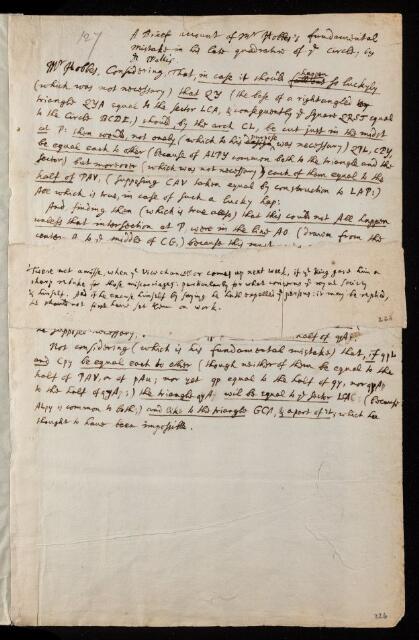 127
A Brief account of Mr Hobbs's fundamental
mistake in his late quadrature of ye circle; by
Dr Wallis.
Mr Hobbes, Considering, That, in case it should happen so luckily
(which was not necessary) that QY (the base of a rightangled
triangle QYA equal to the sector LCA, & consequently ye square QRST equal
to the circle BCDE,) should, by the arch CL, be cut just in the midst
at P: then would, not onely (which to his was necessary) QPL, CPY
be equal each to other (because of ALPY common both to the triangle and the
sector) but moreover (which was not necessary) each of them equal to the
half of PAV; (supposing CAV taken equal by construction to LAP;)
All which is true, in case of such a lucky hap:
And finding then (which is true allso) that this could not All happen
unless that intersection at P were in the line AO (drawn from the
center A to ye middle of CG;) because this must
There not amisse, when ye Vice-chancellor comes up next week, if ye King gave him a
sharp rebuke for those miscarriages: particularly for what concerns ye royal society
& himself. And if he excuse himself by saying he hath expelled ye persons: it may be replied,
he should not first have set them on work.
226
he supposes necessary. half of yA
Not considering (which is his fundamental mistake) that, if qpL
and Cpy be equal each to other (though neither of them be equal to the
half of PAV, or of pAu; nor yet qp equal to the half of qy, nor qpA
to the half of qyA;) the triangle qyA, will be equal to ye sector LAC: (because
ALpy is common to both;) and also to the triangle GCA, & a part of it, which hee
thought to have been impossible.
226